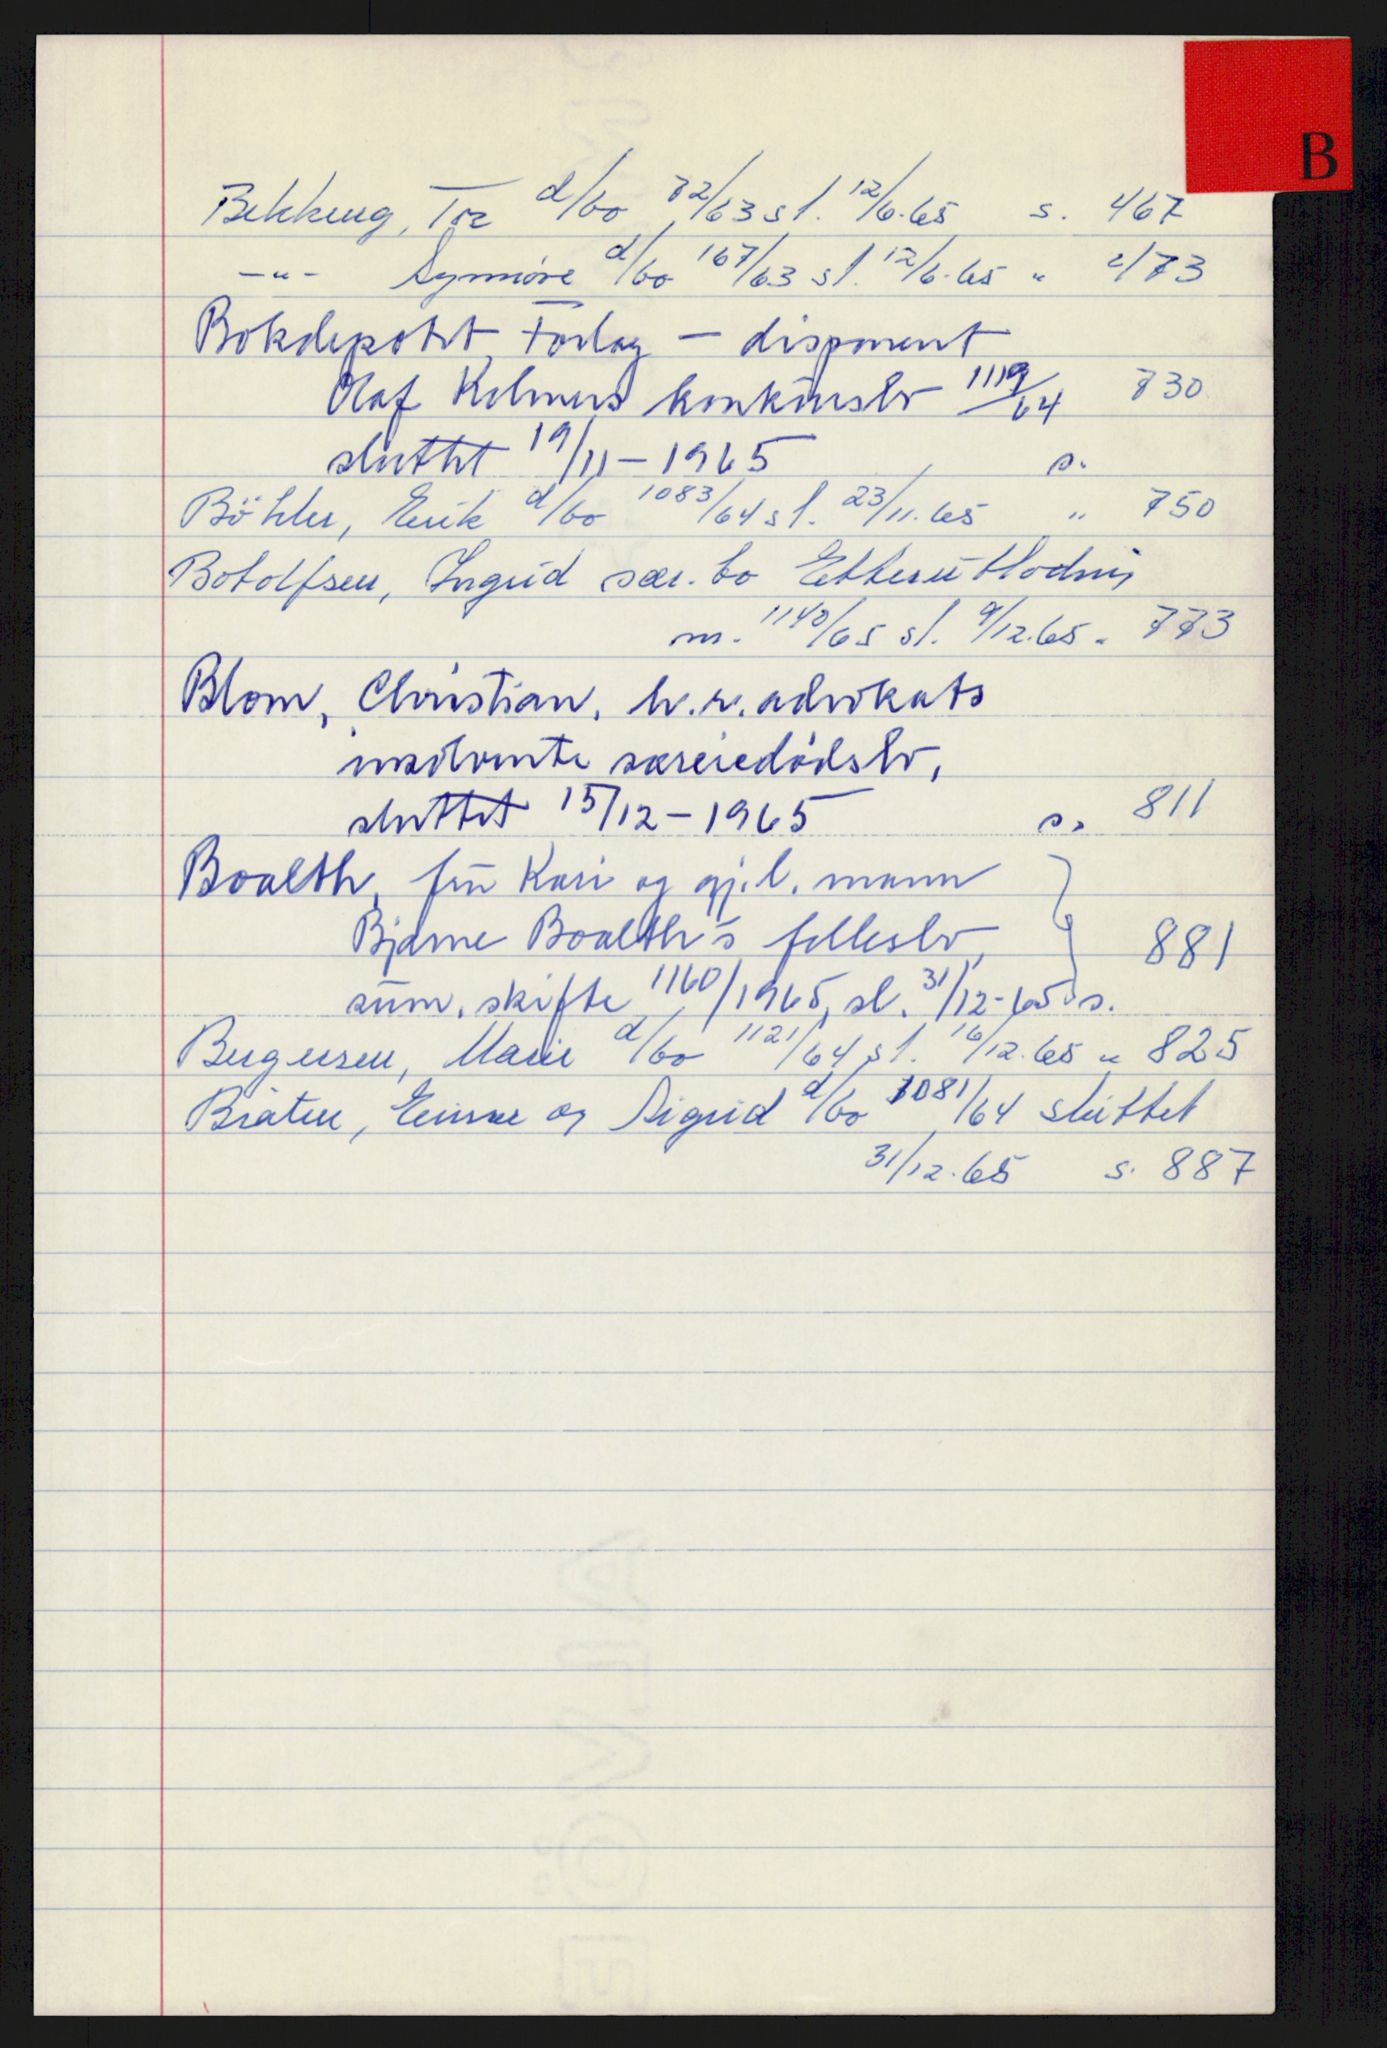 B
Bekkeng, Tor d/bo 72/63 sl. 12/6.65 s. 467
-"- Synnöve d/bo 167/63 sl. 12/6.65 " 473
Bokdepotet Forlag – disponent
Olaf konkursbo 1119/64 730
sluttet 19/11 – 1965 s.
Böhler, Erik d/bo 1083/64 sl. 23/11.65 " 750
Botolfsen, Ingrid sær.bo
m. 1140/65 sl. 9/12.65 " 773
Blom, Christian, h.r.advokats
insolvente særeiedødsbo,
sluttet 15/12 – 1965 s. 811
Boalth, frü Kari og gj.l. mann
Bjarne Boalth's fellesbo, 881
süm. skifte 1160/1965, sl. 31/12-65 s.
Bergersen, Marie d/bo 1121/64 sl. 16/12.65 " 825
Bråten, Einar og Sigrid d/bo 1081/64 slüttet
31/12.65 s. 887